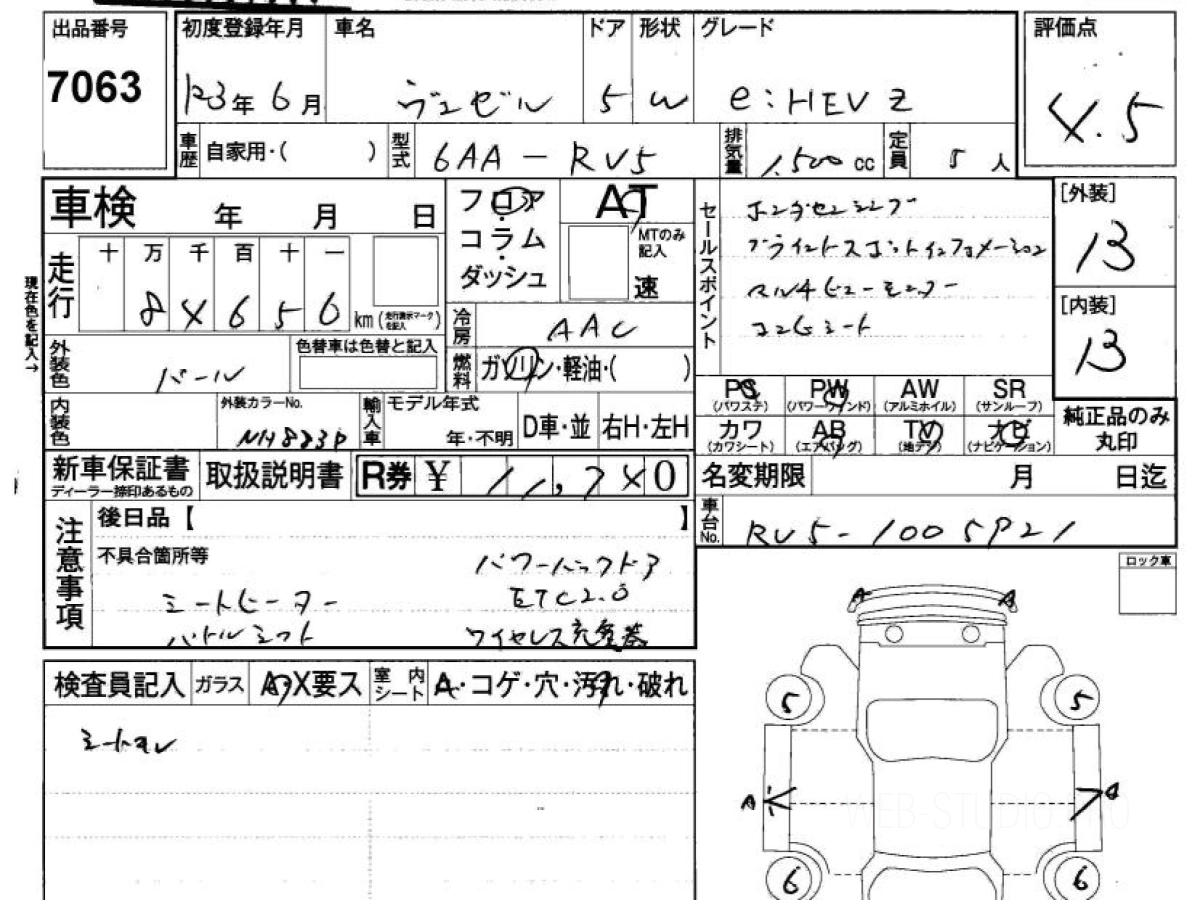 出品番号
7063
初度登録年月
R3年6月
車名
ヴェゼル
ドア
5
形状
W
グレード
e:HEV Z
評価点
4.5
車歴
自家用・( )
型式
6AA-RV5
排気量
1,500 cc
定員
5 人
車検 年 月 日
走行
十 万 千 百 十 一
8 4 6 5 6 km (走行表示マークを記入)
現在色を記入→
外装色
パール
色替車は色替と記入
内装色
外装カラーNo.
NH883P
フロア
コラム
ダッシュ
AT
MTのみ記入
速
冷房
AAC
燃料
ガソリン・軽油・( )
輸入車
モデル年式
年・不明
D車・並
右H・左H
セールスポイント
ホンダセンシング
ブラインドスポットインフォメーション
マルチビューモニター
コンビシート
[外装]
B
[内装]
B
PS
(パワステ)
PW
(パワーウインド)
AW
(アルミホイル)
SR
(サンルーフ)
カワ
(カワシート)
AB
(エアバッグ)
TV
(地デジ)
ナビ
(ナビゲーション)
純正品のみ
丸印
新車保証書
ディーラー捺印あるもの
取扱説明書
R券 ¥ 11,740
名変期限 月 日迄
車台No.
RV5-1005921
注意事項
後日品【 】
不具合箇所等
パワーバックドア
シートヒーター
ETC2.0
パドルシフト
ワイヤレス充電器
ロック車
検査員記入
ガラス
A・X要ス
室内シート
A・コゲ・穴・汚れ・破れ
シートヨレ
A A
5 5
A A
6 6
WEB-STUDIO.PRO